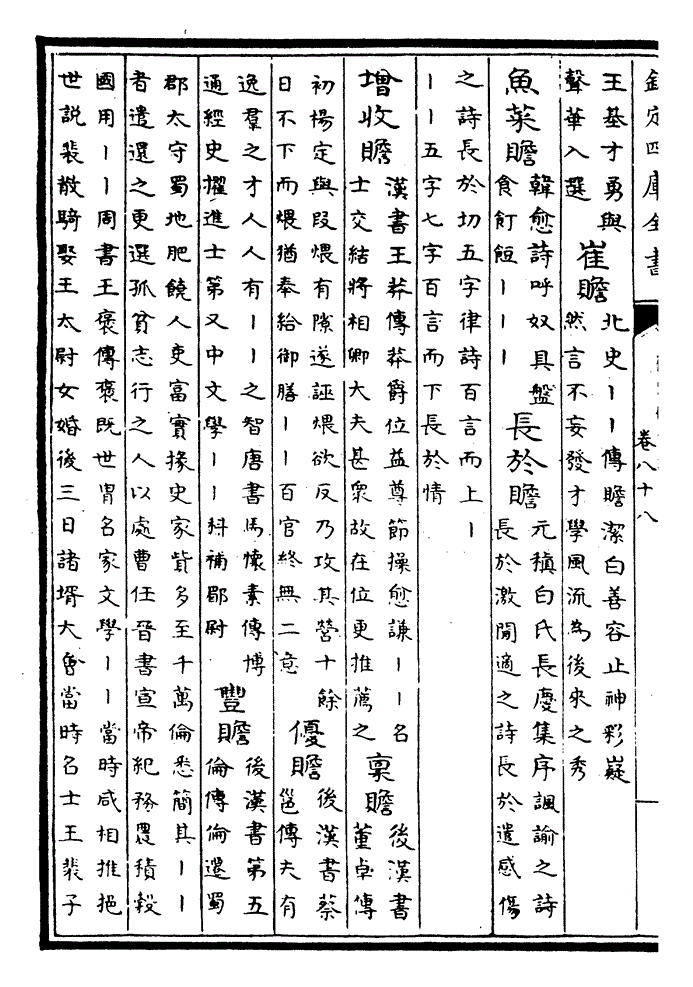 欽定四庫全書
卷八十八
王基才勇與
聲華入選
崔贍
北史丨丨傳贍潔白善容止神彩嶷
然言不妄發才學風流為後來之秀
魚菜贍
韓愈詩呼奴具盤
食飣餖丨丨丨
長於贍
元稹白氏長慶集序諷諭之詩
長於激閒適之詩長於遣感傷
之詩長於切五字律詩百言而上丨
丨丨五字七字百言而下長於情
增收贍
漢書王莽傳莽爵位益尊節操愈謙丨丨名
士交結將相卿大夫甚衆故在位更推薦之
稟贍
後漢書
董卓傳
初楊定與段煨有隙遂誣煨欲反乃攻其營十餘
日不下而煨猶奉給御膳丨丨百官終無二意
優贍
後漢書蔡
邕傳夫有
逸羣之才人人有丨丨之智唐書馬懷素傳博
通經史擢進士第又中文學丨丨科補郿尉
豐贍
後漢書第五
倫傳倫遷蜀
郡太守蜀地肥饒人吏富實掾史家貲多至千萬倫悉簡其丨丨
者遣還之更選孤貧志行之人以處曹任晉書宣帝紀務農積穀
國用丨丨周書王褒傳褒既世胄名家文學丨丨當時咸相推挹
世説裴散騎娶王太尉女婚後三日諸壻大㑹當時名士王裴子